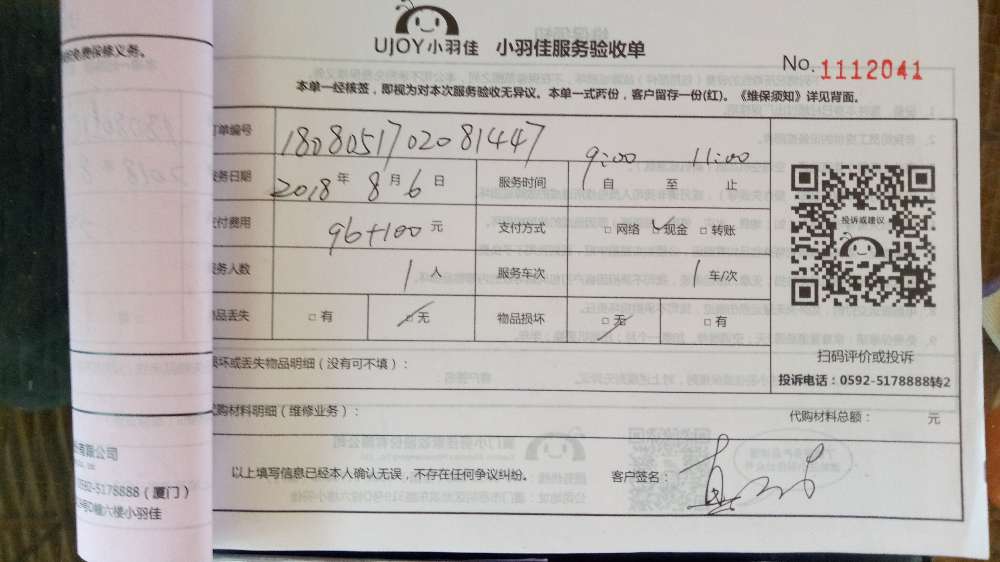 UJOY小羽佳 小羽佳服务验收单
No. 1112041
免费保修义务。
本单一经核签，即视为对本次服务验收无异议。本单一式两份，客户留存一份(红)。《维保须知》详见背面。
订单编号 1808051702081447
服务日期 2018年8月6日 服务时间 9:00自 至 11:00止
支付费用 96+100元 支付方式 □网络 ☑现金 □转账
服务人数 1人 服务车次 1车/次
物品丢失 □有 ☑无 物品损坏 ☑无 □有
投诉或建议
扫码评价或投诉
投诉电话：0592-5178888转2
损坏或丢失物品明细（没有可不填）：
代购材料明细（维修业务）： 代购材料总额： 元
以上填写信息已经本人确认无误，不存在任何争议纠纷。 客户签名：
有限公司
0592-5178888（厦门）
号D幢六楼小羽佳